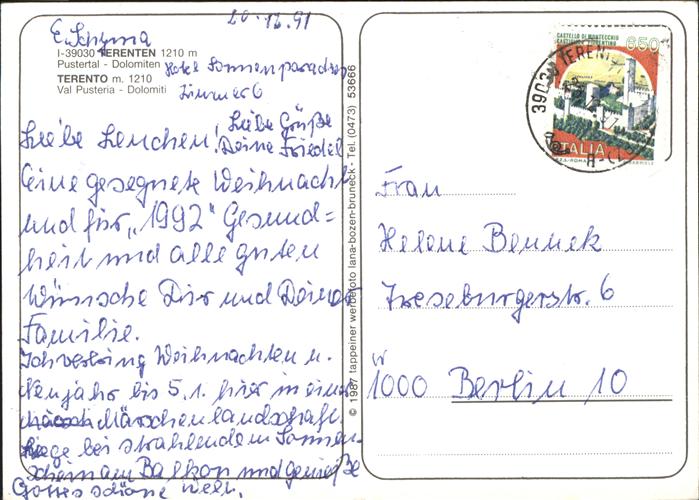 20.12.91
E. Schyma
I-39030 TERENTEN 1210 m
Pustertal - Dolomiten
Hotel Sonnenparadies
TERENTO m. 1210
Zimmer 6
Val Pusteria - Dolomiti
Liebe Lenchen!
Liebe Grüße
Deine Friedel
Eine gesegnete Weihnacht
und für "1992" Gesund=
heit und alle guten
Wünsche Dir und Deiner
Familie.
Ich verbring Weihnachten u.
Neujahr bis 5.1. hier in einer
Märschenlandschaft
liege bei strahlendem Sonnen-
schein am Balkon und genieße
Gottes schöne Welt.
© 1987 tappeiner werbefoto lana-bozen-bruneck - Tel. (0473) 53666
CASTELLO DI MONTECCHIO
CASTIGLION FIORENTINO
650
ITALIA
I.P.Z.S.-ROMA
39030 TERENT
Frau
Helene Bennek
Treseburgerstr. 6
W
1000 Berlin 10